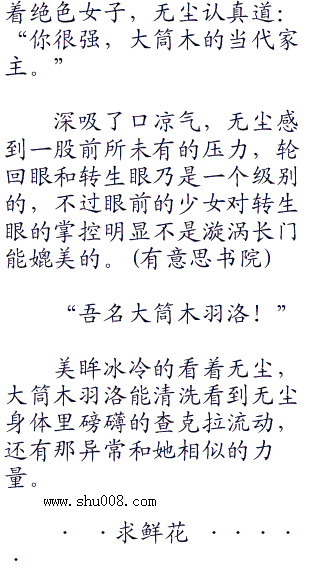 着绝色女子，无尘认真道：
“你很强，大筒木的当代家
主。”
深吸了口凉气，无尘感
到一股前所未有的压力，轮
回眼和转生眼乃是一个级别
的，不过眼前的少女对转生
眼的掌控明显不是漩涡长门
能媲美的。(有意思书院)
“吾名大筒木羽洛！”
美眸冰冷的看着无尘，
大筒木羽洛能清洗看到无尘
身体里磅礴的查克拉流动，
还有那异常和她相似的力
量。
www.shu008.com
· ·求鲜花 ····
·